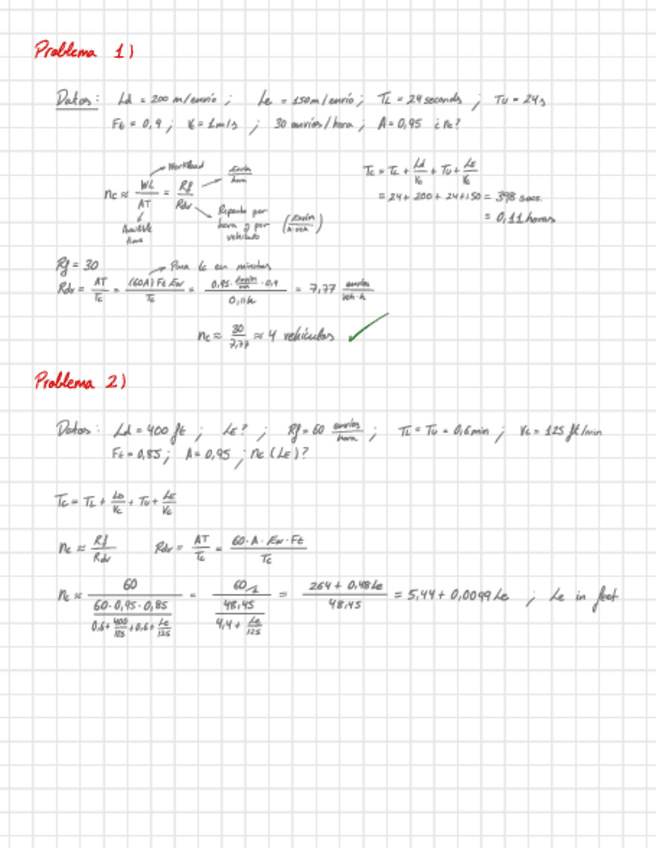 Problema 1)
Datos: Ld = 200 m/envío ; Le = 150m/envío ; TL = 24 seconds ; Tu = 24s
Ft = 0,9 ; Vc = 1m/s ; 30 envíos/hora ; A = 0,95 ¿nc?
Workload
nc ≈ WL/AT = Rf/Rdv
Envíos/hora
Available time
Reparto por hora y por vehículo (Envíos/h·veh)
Tc = TL + Ld/Vc + Tu + Le/Vc
= 24 + 200 + 24 + 150 = 398 secs.
= 0,11 horas
Rf = 30
Para tc en minutos
Rdv = AT/Tc = (60A) Ft Ew/Tc = 0,95 · · 0,9/0,11h = 7,77 envíos/veh·h
nc ≈ 30/7,77 ≈ 4 vehículos ✓
Problema 2)
Datos: Ld = 400 ft ; Le? ; Rf = 60 envíos/hora ; TL = Tu = 0,6min ; Vc = 125 ft/min
Ft = 0,85 ; A = 0,95 ; nc (Le)?
Tc = TL + Ld/Vc + Tu + Le/Vc
nc ≈ Rf/Rdv Rdv = AT/Tc = 60·A·Ew·Ft/Tc
nc ≈ 60/((60·0,95·0,85)/(0,6 + 400/125 + 0,6 + Le/125)) = 60/(48,45/(4,4 + Le/125)) = (264 + 0,48Le)/48,45 = 5,44 + 0,0099 Le ; Le in feet